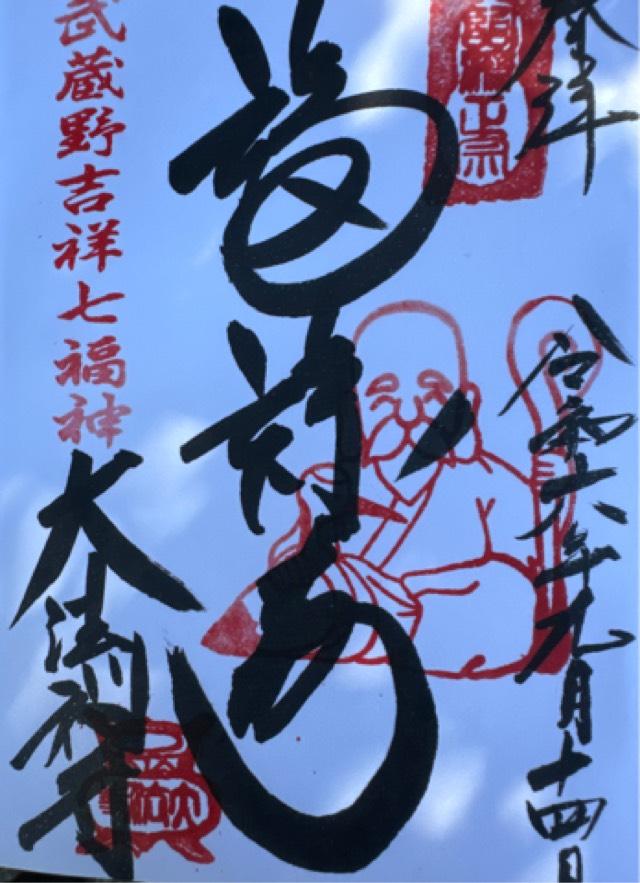 奉拝
令和六年九月十四日
福禄寿
武蔵野吉祥七福神
大法禅寺